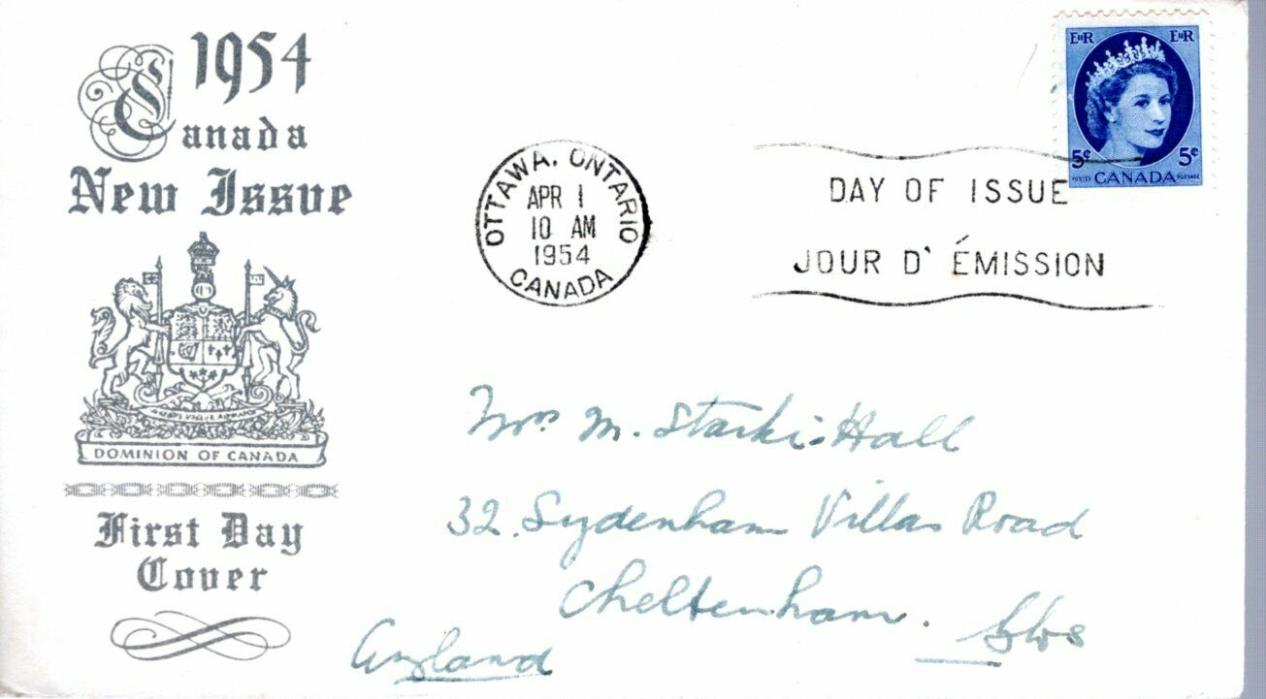 1954
Canada
New Issue
DOMINION OF CANADA
First Day
Cover
OTTAWA, ONTARIO
APR 1
10 AM
1954
CANADA
DAY OF ISSUE
JOUR D' ÉMISSION
EIIR EIIR
5¢ 5¢
POSTES CANADA POSTAGE
Mrs M.
32. Sydenham Villas Road
Cheltenham. Glos
England